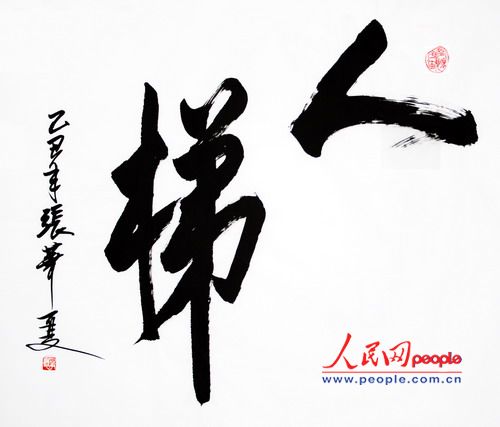 人梯
乙丑年張華夏
人民网people
www.people.com.cn